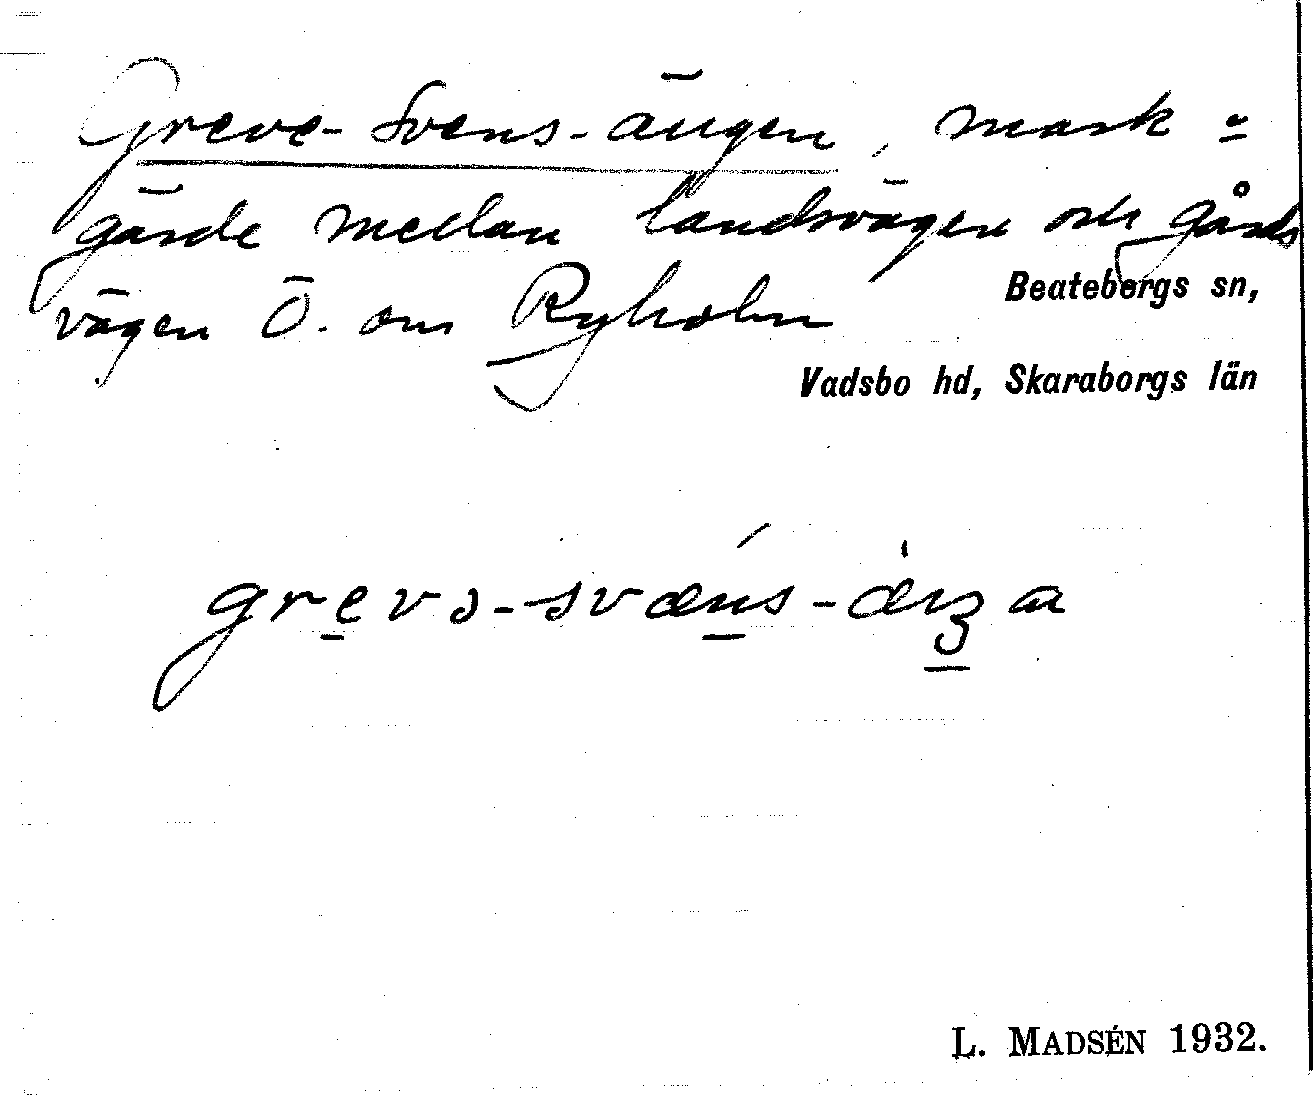 Greve-Svens-ängen, mark o
gärde mellan landsvägen och gårds
vägen Ö. om Ryholm
Beatebergs sn,
Vadsbo hd, Skaraborgs län
grevə-svæns-
L. MADSÉN 1932.